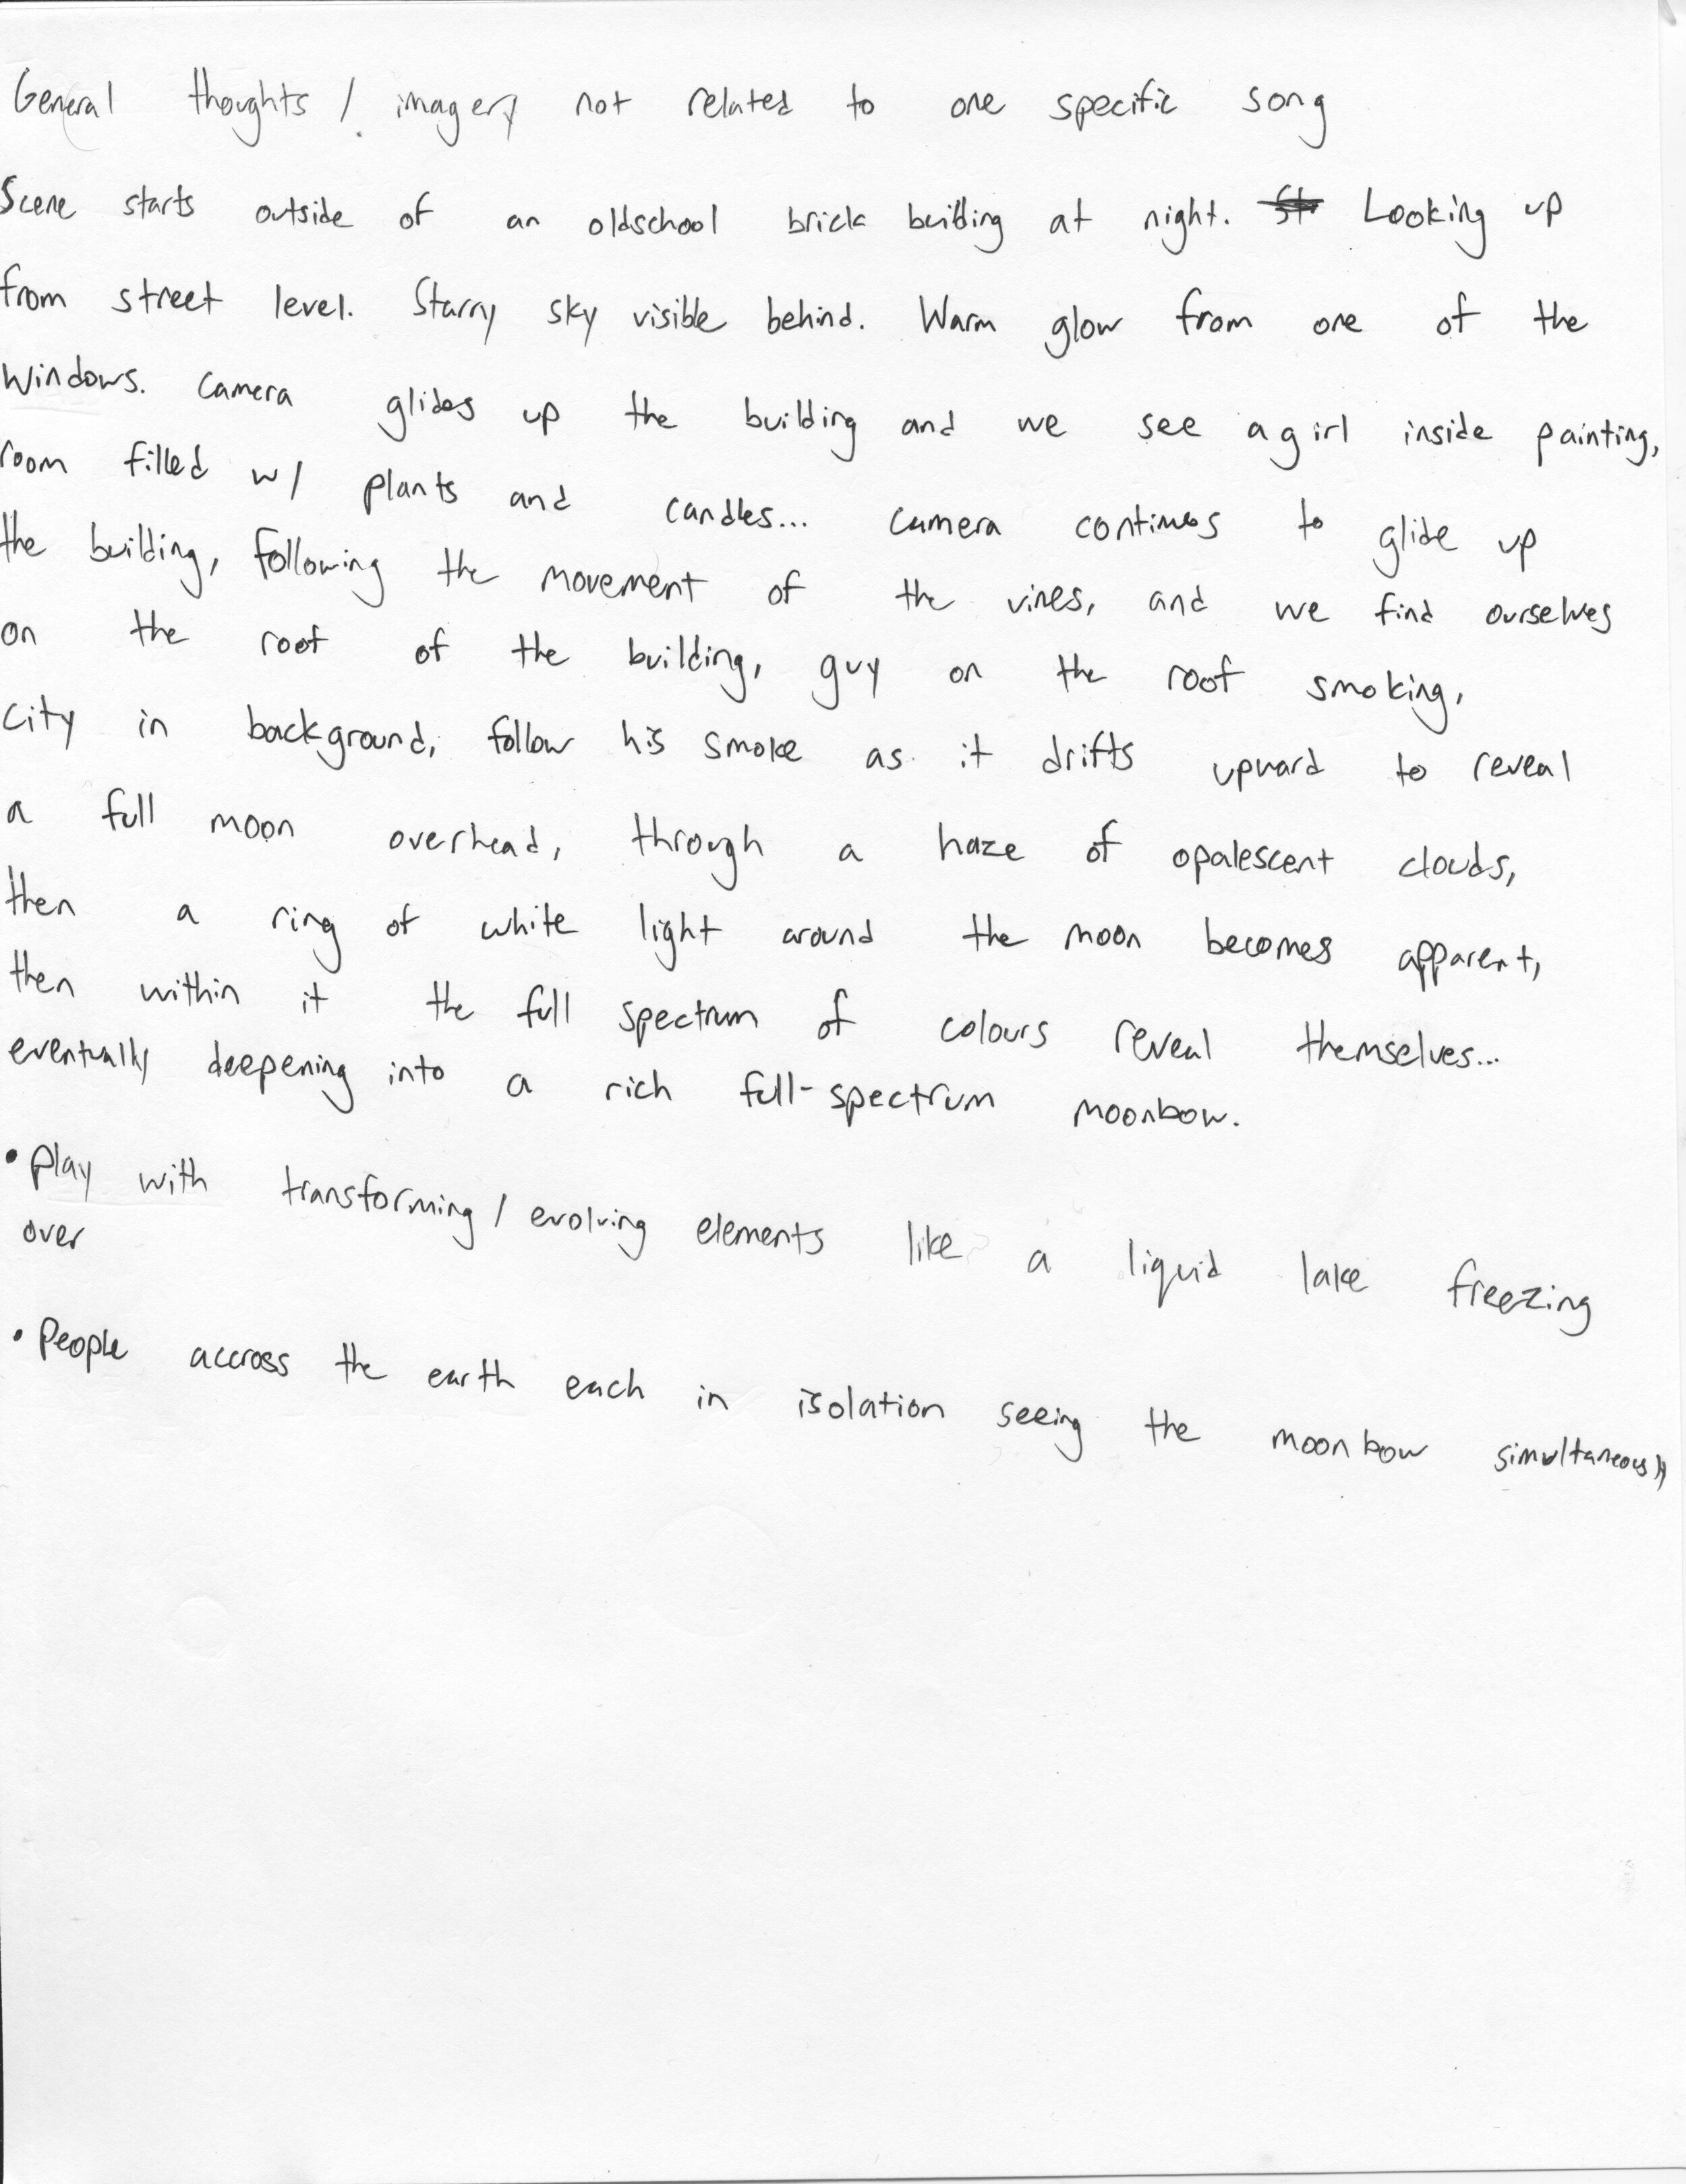 General thoughts / imagery not related to one specific song
Scene starts outside of an oldschool brick building at night. Looking up
from street level. Starry sky visible behind. Warm glow from one of the
windows. Camera glides up the building and we see a girl inside painting,
room filled w/ plants and candles... camera continues to glide up
the building, following the movement of the vines, and we find ourselves
on the roof of the building, guy on the roof smoking,
city in background, follow his smoke as it drifts upward to reveal
a full moon overhead, through a haze of opalescent clouds,
then a ring of white light around the moon becomes apparent,
then within it the full spectrum of colours reveal themselves...
eventually deepening into a rich full-spectrum moonbow.
• Play with transforming / evolving elements like a liquid lake freezing
over
• People accross the earth each in isolation seeing the moonbow simultaneously